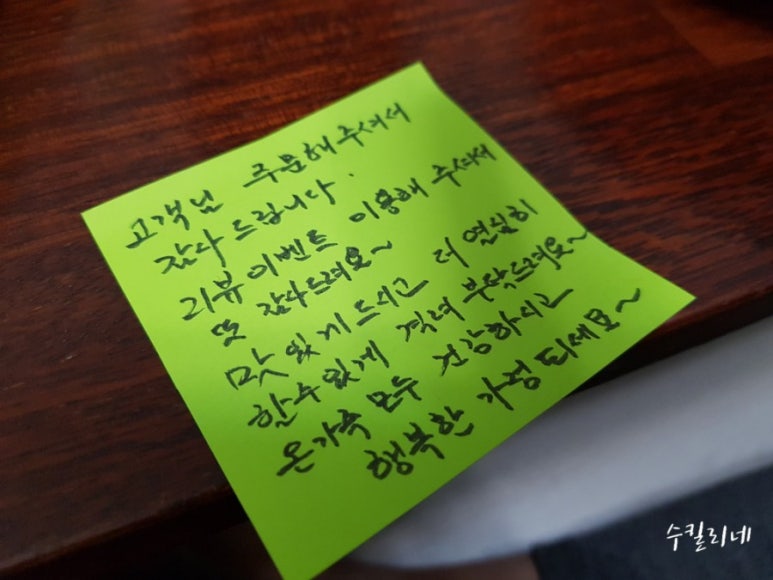 고객님 주문해주셔서
감사드립니다.
리뷰이벤트 이용해 주셔서
또 감사드려요~
맛있게 드시고 더 열심히
할수있게 격려 부탁드려요~
온가족 모두 건강하시고
행복한 가정 되세요~
수킬리네